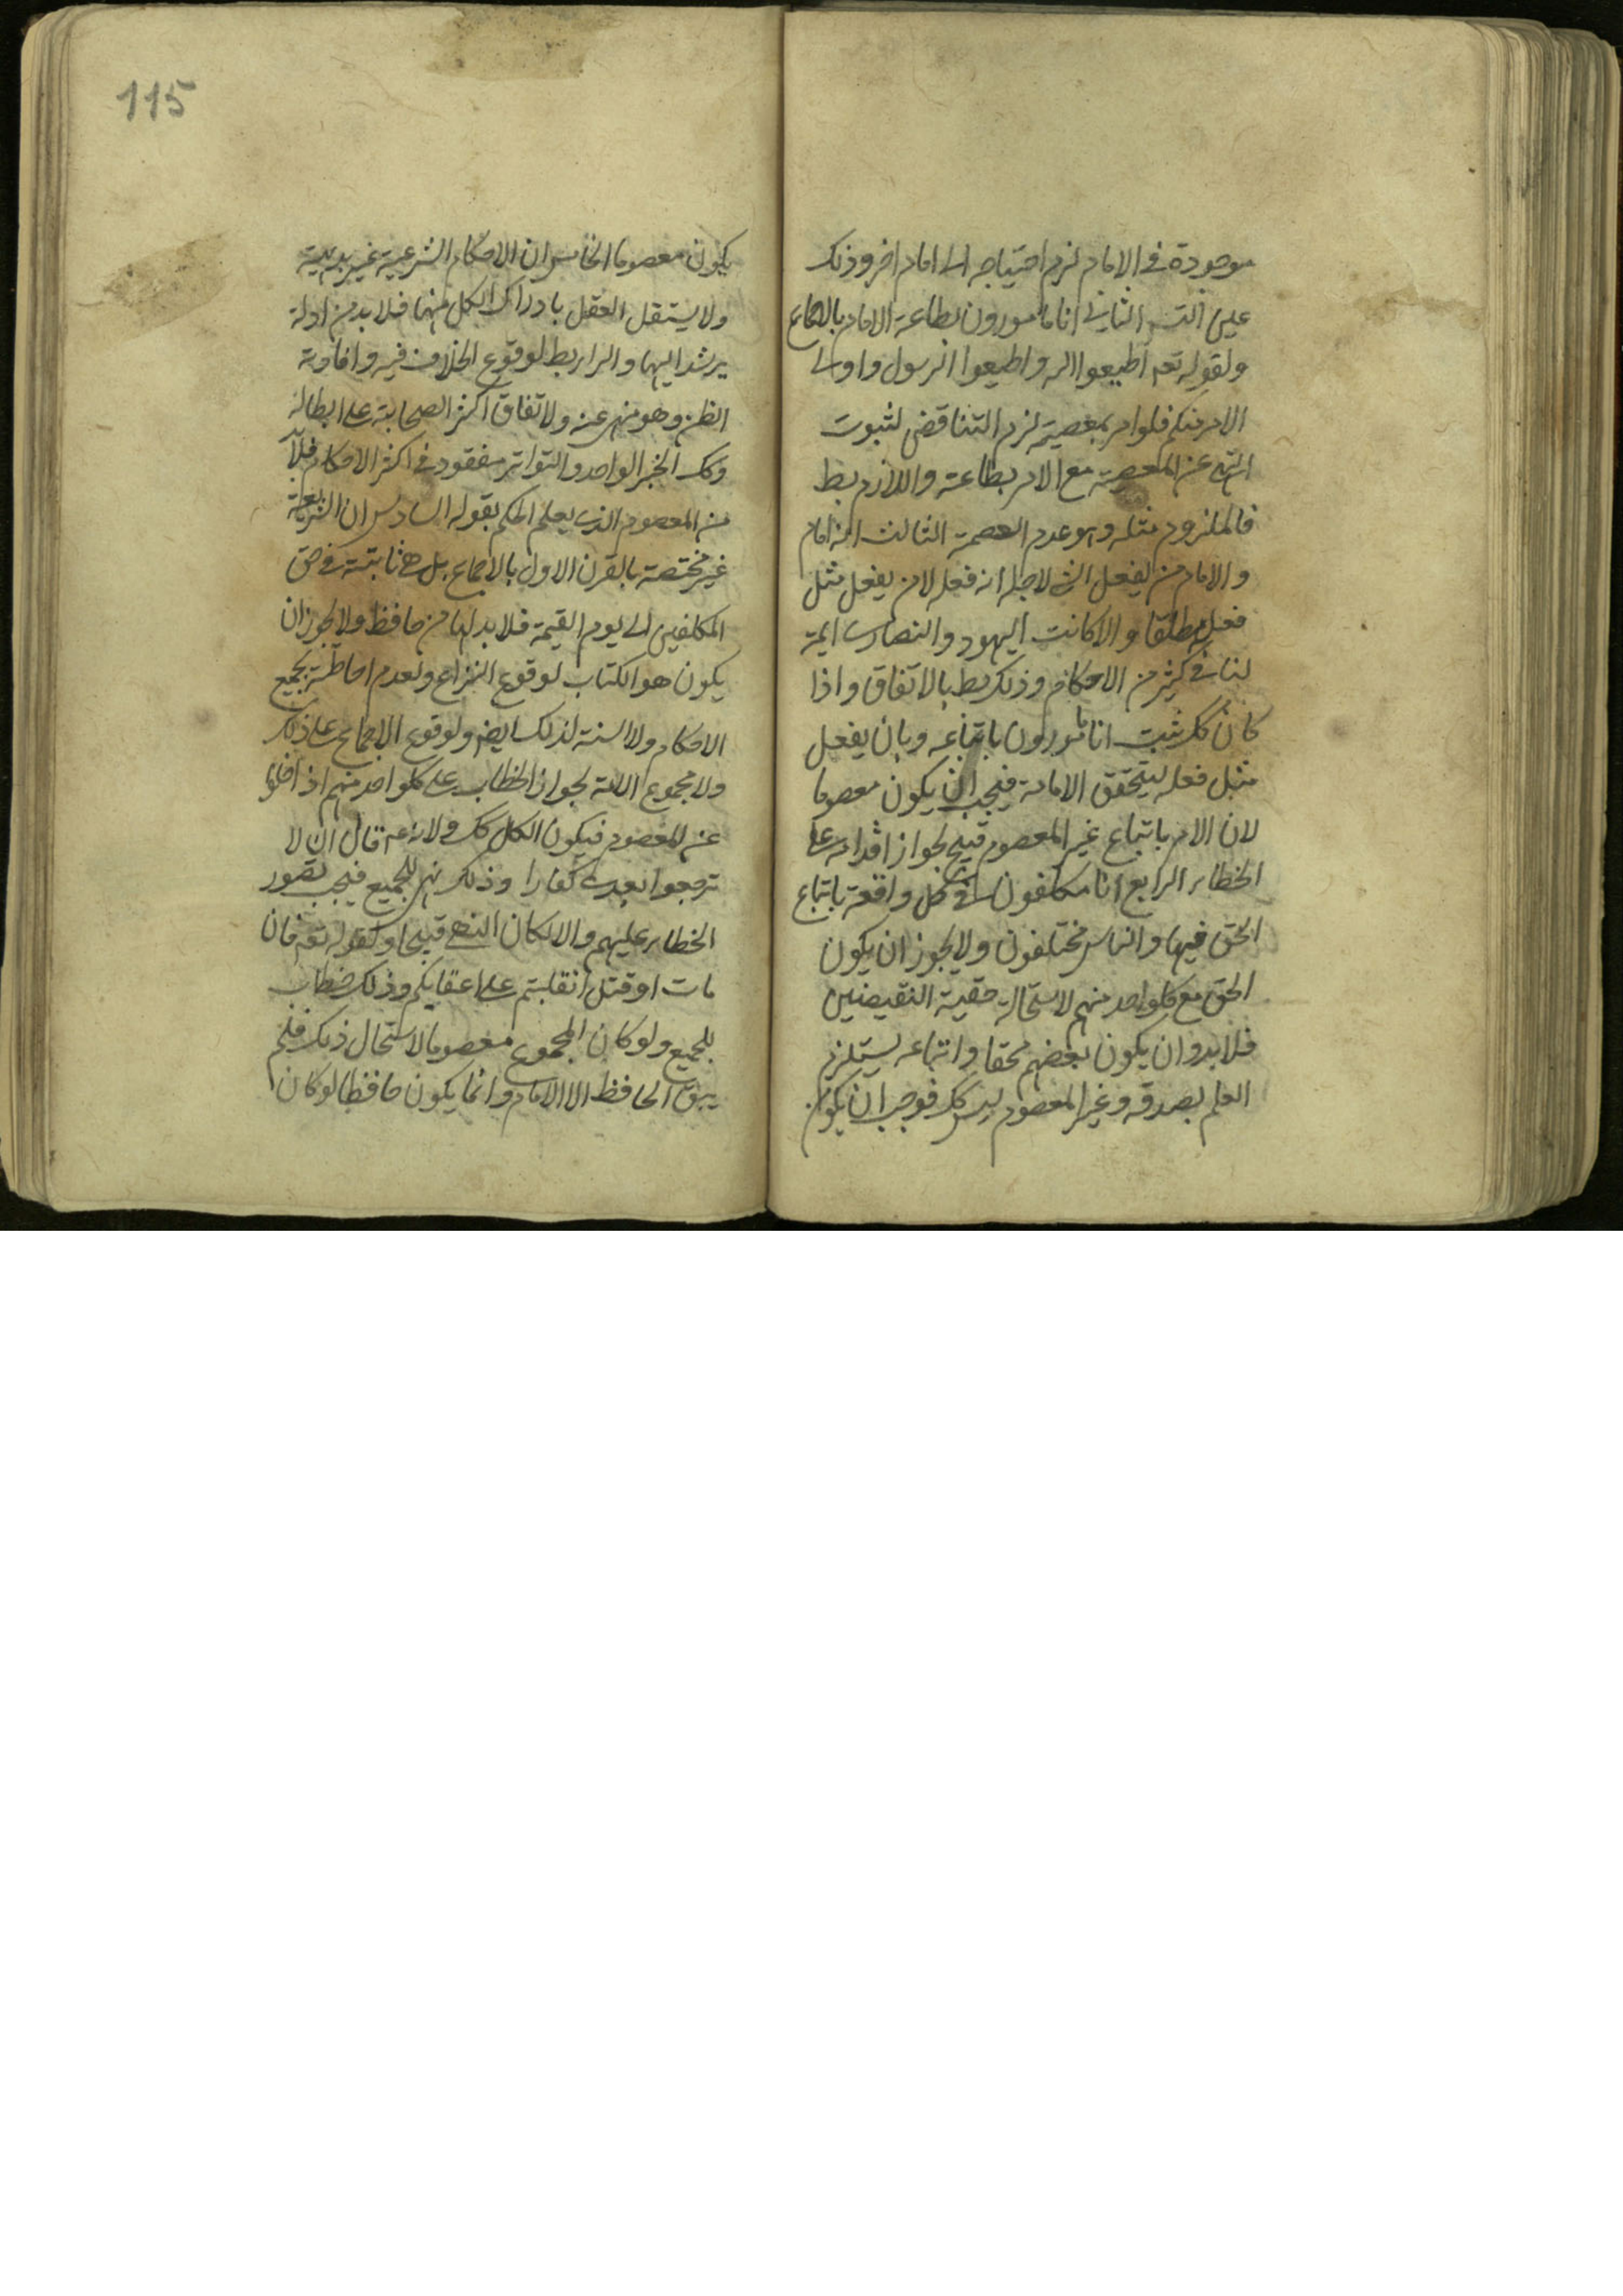 موجودة في الامام لزم احتياجه الى امام اخر وذلك
عين التسـ الثاني انا مامورون بطاعة الامام بالاجماع
ولقوله تعـ اطيعوا الله واطيعوا الرسول واولى
الامر منكم فلو امر بمعصية لزم التناقض لثبوت
النهى عن المعصية مع الامر بطاعته واللازم بط
فالملزوم مثله وهو عدم العصمة الثالث انه امام
والامام من يفعل الشى لاجل انه فعله لا من يفعل مثل
فعله مطلقا والا كانت اليهود والنصارى ايمة
لنا في كثير من الاحكام وذلك بط بالاتفاق واذا
كان كك ثبت انا مامورون باتباعه وبان يفعل
مثل فعله ليتحقق الامامة فيجب ان يكون معصوما
لان الامر باتباع غير المعصوم قبيح لجواز اقدامه على
الخطاء الرابع انا مكلفون في كل واقعة باتباع
الحق فيها والناس مختلفون ولا يجوز ان يكون
الحق مع كلواحد منهم لاستحالة حقية النقيضين
فلا بد وان يكون بعضهم محقا واتباعه يستلزم
العلم بصدقه وغير المعصوم ليس كك فوجب ان يكون
115
يكون معصوما الخامس ان الاحكام الشرعية غير بديهية
ولا يستقل العقل بادراك الكل منها فلا بد من ادلة
يرشد اليها والراى بط لوقوع الخلاف فيه وافادته
الظن وهو منهى عنه ولاتفاق اكثر الصحابة على ابطاله
وكك الخبر الواحد والتواتر مفقود في اكثر الاحكام فلا بد
من المعصوم الذى يعلم الحكم بقوله السادس ان الشريعة
غير مختصة بالقرن الاول بالاجماع بل هى ثابتة في حق
المكلفين الى يوم القيمة فلا بد لها من حافظ ولا يجوز ان
يكون هو الكتاب لوقوع النزاع ولعدم احاطته بجميع
الاحكام ولا السنة لذلك ايضـ ولوقوع الاجماع على ذلك
ولا مجموع الامة لجواز الخطاء على كلواحد منهم اذ اخلوا
عن المعصوم فيكون الكل كك ولانه عم قال ان لا
ترجعوا بعدى كفارا وذلك نهى للجميع فيجب تصور
الخطاء عليهم والا لكان النهى قبيحا وكقوله تعـ فان
مات او قتل انقلبتم على اعقابكم وذلك خطاب
للجميع ولو كان المجموع معصوما لاستحال ذلك فلم
يبق الحافظ الا الامام وانما يكون حافظا لو كان